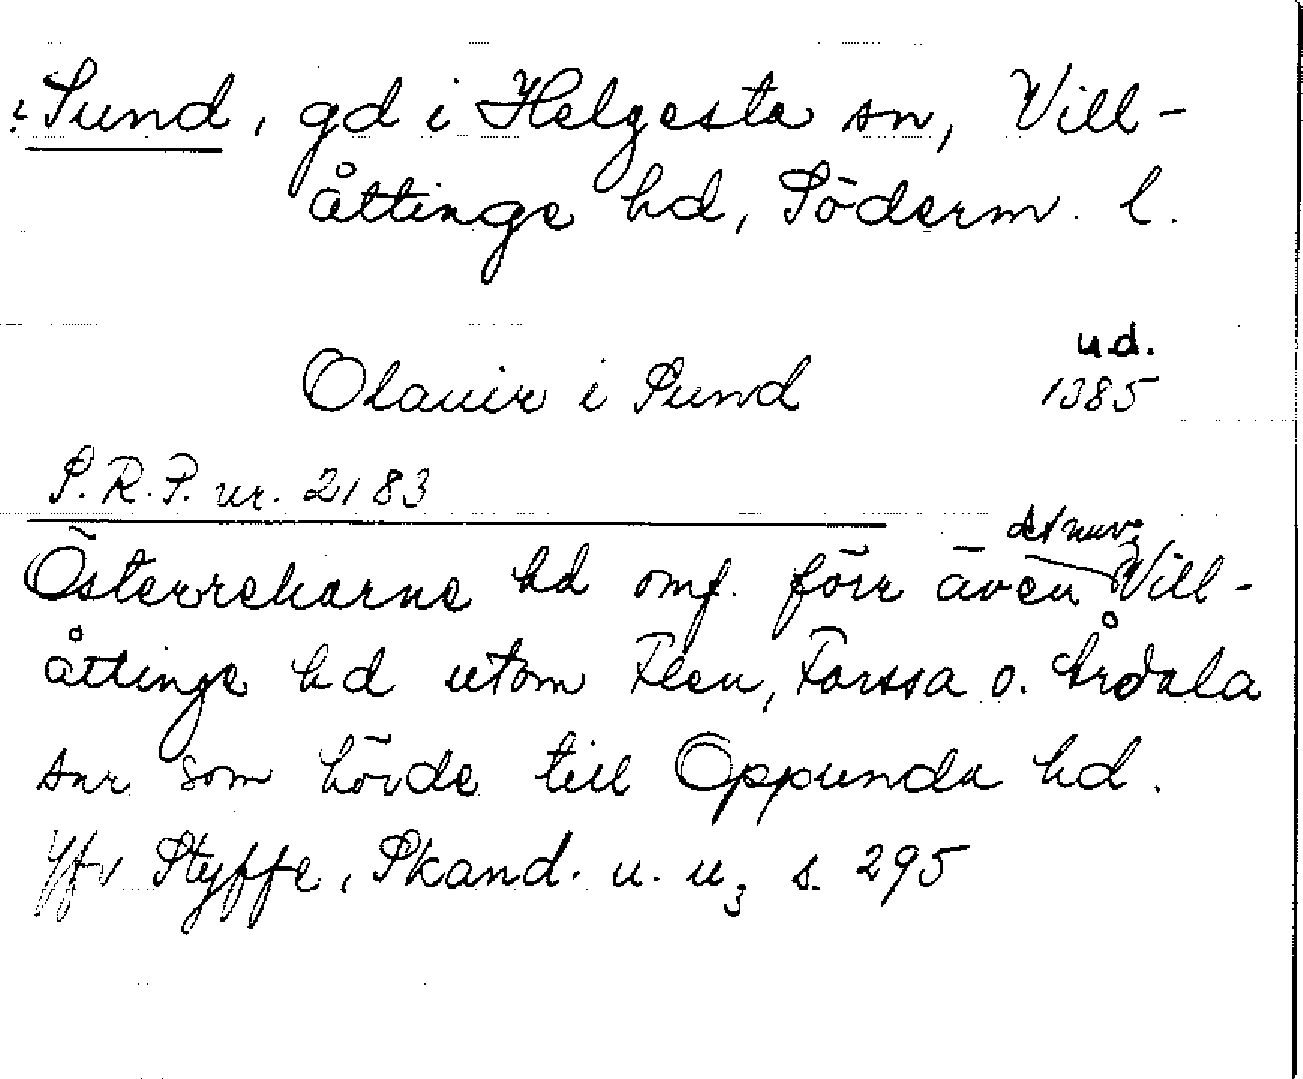 : Sund, gd i Helgesta sn, Vill-
åttinge hd, Söderm. l.
u.d.
Olauir i Sund 1385
S.R.P. nr. 2183
det nuv.
Österrekarne hd omf. förr även Vill-
åttinge hd utom Flen, Forssa o. Årdala
snr som hörde till Oppunda hd.
Jfr Styffe, Skand. u. u₃ s. 295